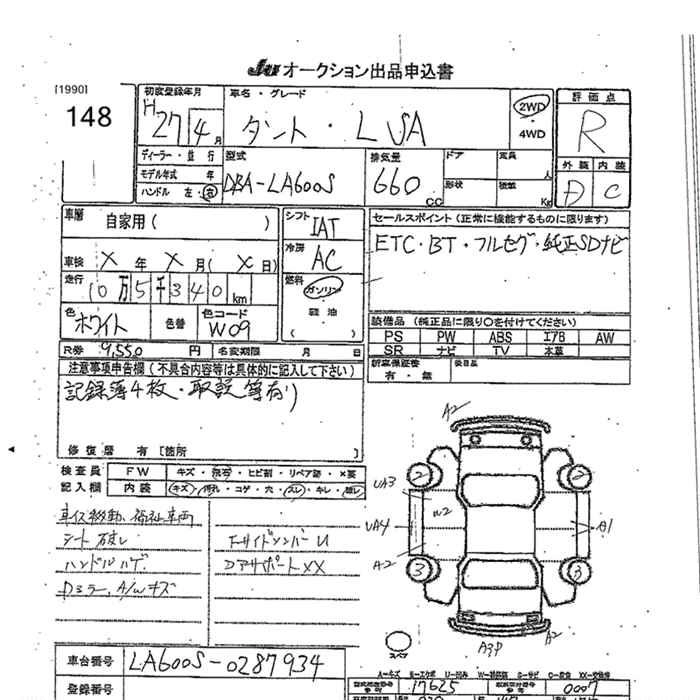 Ju オークション出品申込書
[1990]
148
初度登録年月
H 27 4 月
車名・グレード
タント・L VSA
2WD
・
4WD
評価点
R
外装 内装
D C
ディーラー・並行
モデル年式 年
ハンドル 左・右
型式
DBA-LA600S
排気量
660 CC
ドア
定員
人
形状
積載
Kg
車歴 自家用( )
車検 X 年 X 月( X 日)
走行
10万5千340 km
色
ホワイト
色替
色コード
W09
シフト
IAT
冷房
AC
燃料
ガソリン
軽油
( )
セールスポイント(正常に機能するものに限ります)
ETC・BT・フルセグ・純正SDナビ
設備品(純正品に限り○を付けてください)
PS PW ABS エアB AW
SR ナビ TV 本革
R券 9,550 円
名変期限 月 日
新車保証書
有・無
後日品
注意事項申告欄(不具合内容等は具体的に記入して下さい)
記録簿4枚・取説等有り
修復歴 有[箇所 ]
検査員
記入欄
FW キズ・飛石・ヒビ割・リペア跡・×要
内装 キズ・汚れ・コゲ・穴・スレ・キレ・
車イス移動、福祉車両
シート 破レ
ハンドル ハゲ
Dミラー、A/Wキズ
FサイドメンバーU
DアサイポートXX
A2
UA3
UA4
A2
W2
A1
2
2
3
3
A2
A3P
スペア
車台番号 LA600S-0287934
登録番号
A=キズ E=エクボ U=凹み W=補修跡 S=サビ C=腐食 XX=交換済
17625
0007